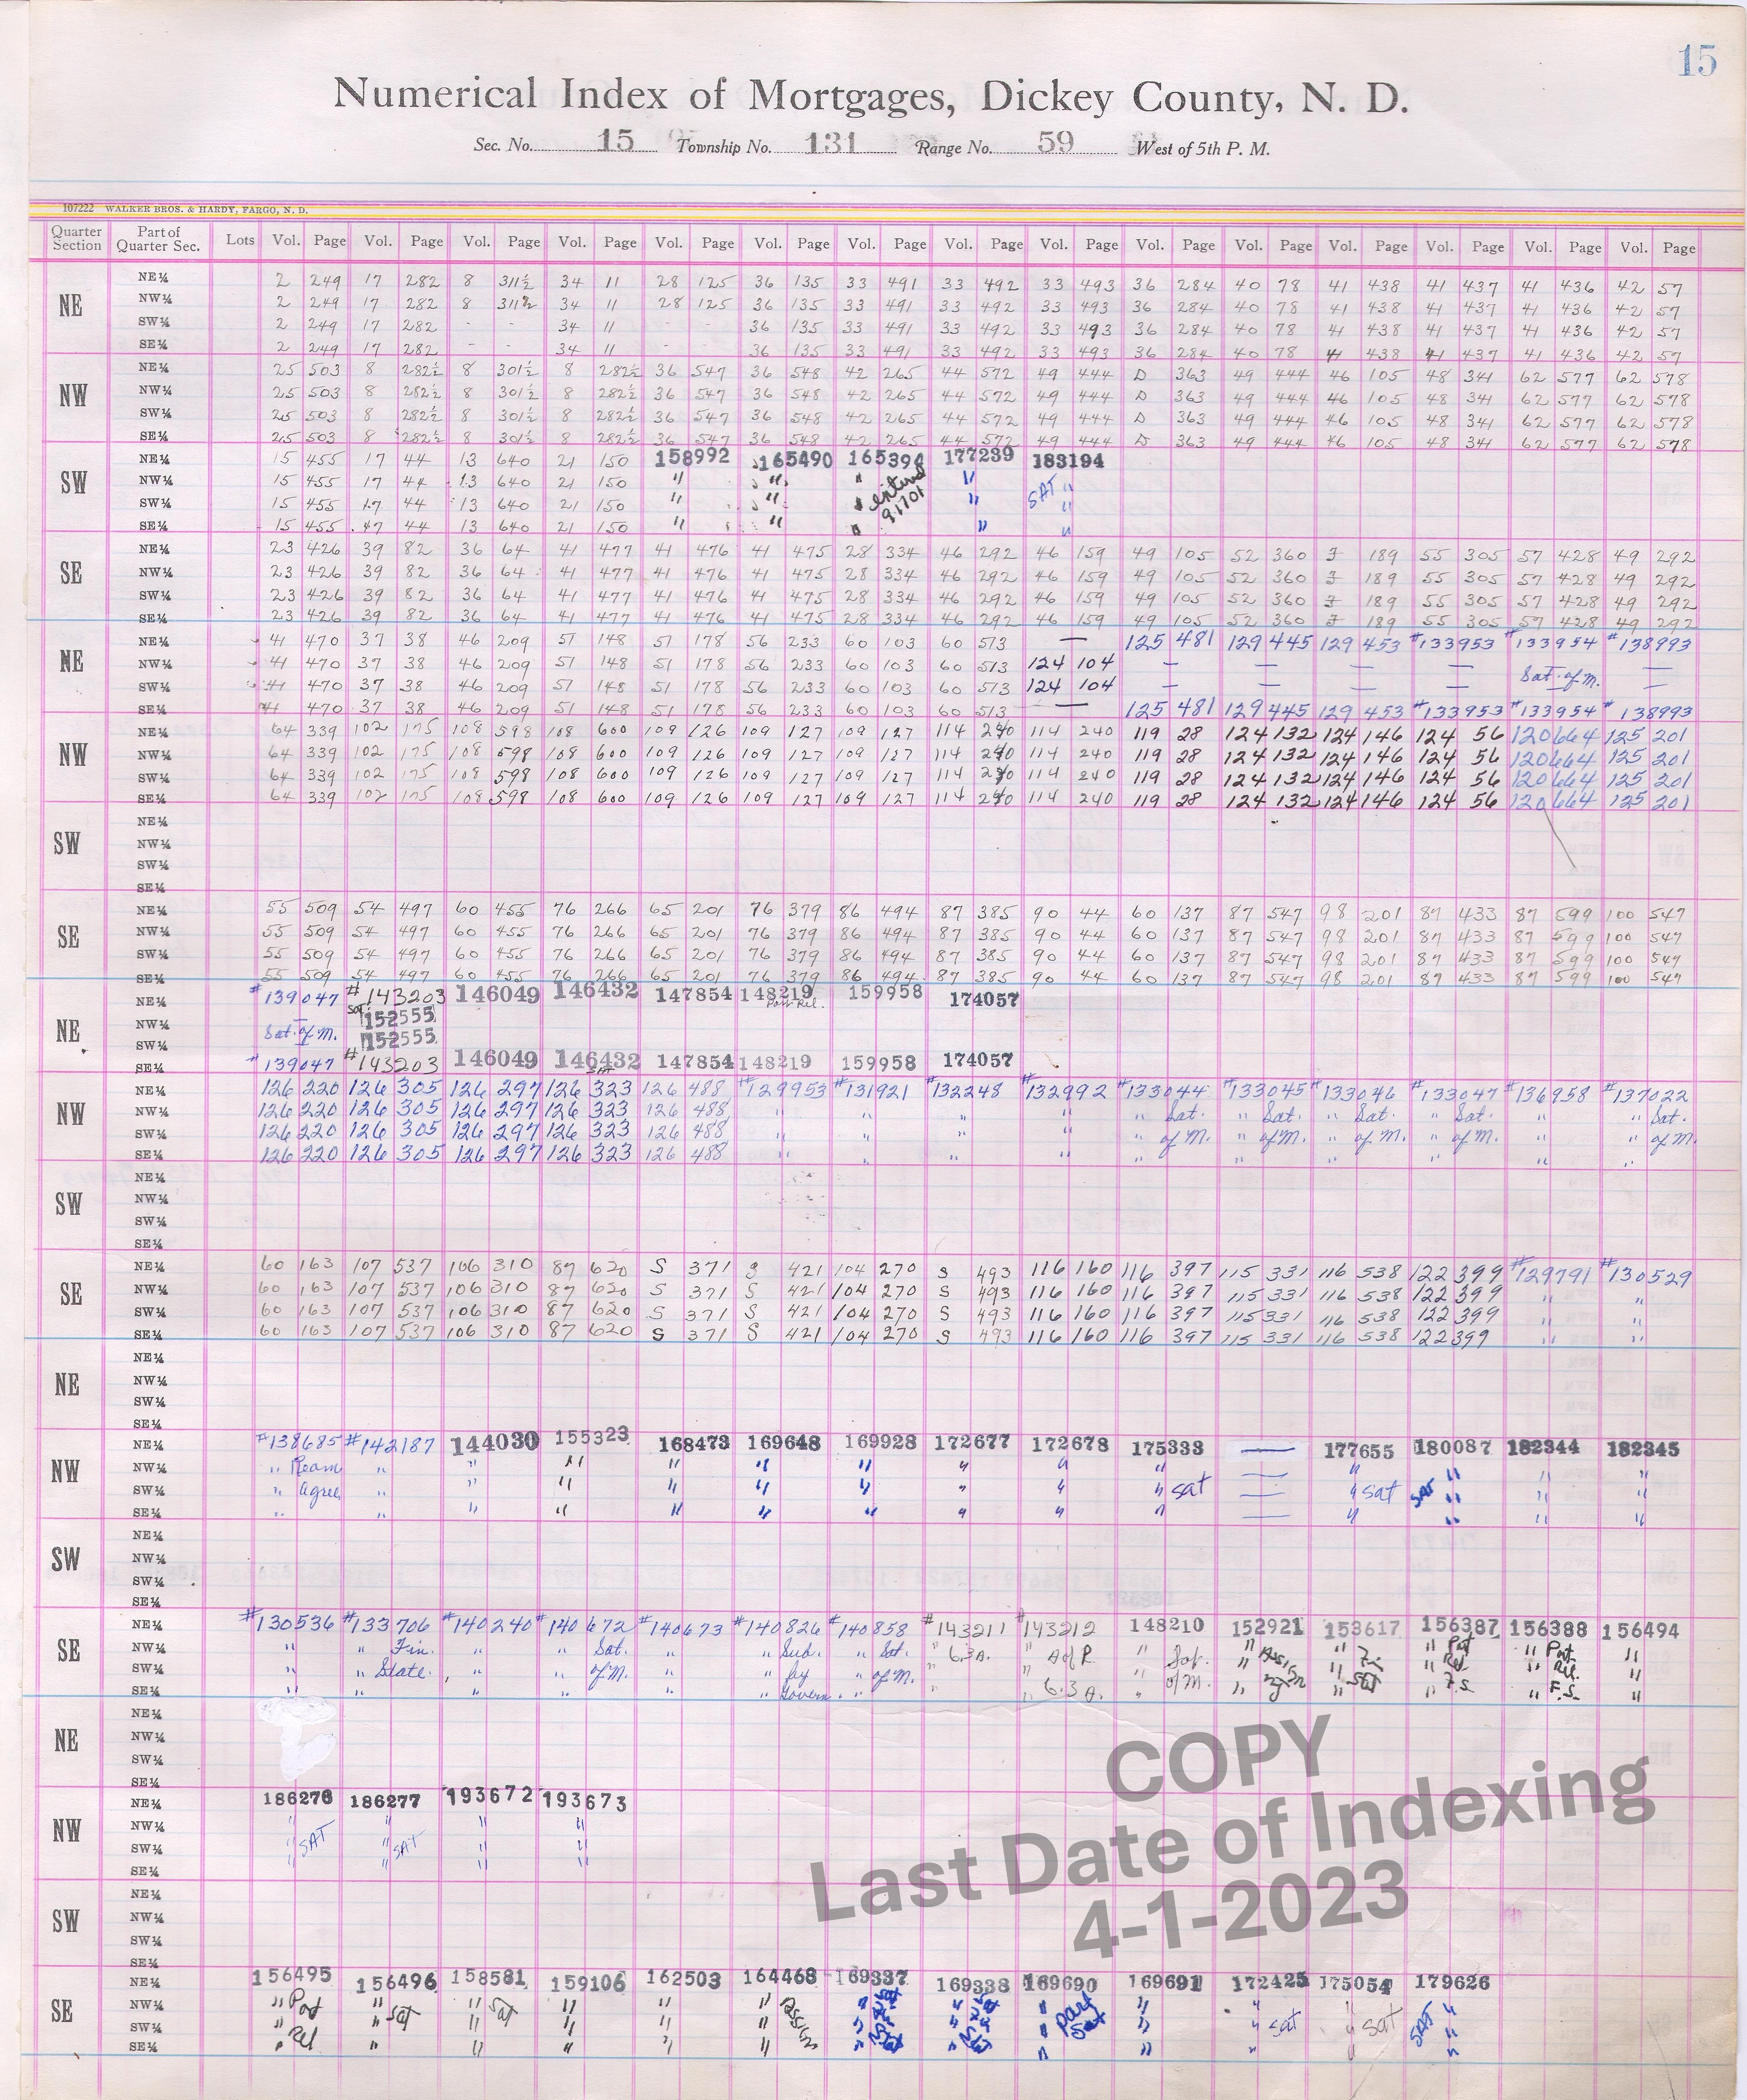 15
Numerical Index of Mortgages, Dickey County, N. D.
Sec. No. 15 Township No. 131 Range No. 59 West of 5th P. M.
107222 WALKER BROS. & HARDY, FARGO, N. D.
Quarter Section Part of Quarter Sec. Lots Vol. Page Vol. Page Vol. Page Vol. Page Vol. Page Vol. Page Vol. Page Vol. Page Vol. Page Vol. Page Vol. Page Vol. Page Vol. Page Vol. Page Vol. Page
NE NE¼ 2 249 17 282 8 311½ 34 11 28 125 36 135 33 491 33 492 33 493 36 284 40 78 41 438 41 437 41 436 42 57
NW¼ 2 249 17 282 8 311½ 34 11 28 125 36 135 33 491 33 492 33 493 36 284 40 78 41 438 41 437 41 436 42 57
SW¼ 2 249 17 282 - - 34 11 - - 36 135 33 491 33 492 33 493 36 284 40 78 41 438 41 437 41 436 42 57
SE¼ 2 249 17 282 - - 34 11 36 135 33 491 33 492 33 493 36 284 40 78 41 438 41 437 41 436 42 57
NW NE¼ 25 503 8 282½ 8 301½ 8 282½ 36 547 36 548 42 265 44 572 49 444 D 363 49 444 46 105 48 341 62 577 62 578
NW¼ 25 503 8 282½ 8 301½ 8 282½ 36 547 36 548 42 265 44 572 49 444 D 363 49 444 46 105 48 341 62 577 62 578
SW¼ 25 503 8 282½ 8 301½ 8 282½ 36 547 36 548 42 265 44 572 49 444 D 363 49 444 46 105 48 341 62 577 62 578
SE¼ 25 503 8 282½ 8 301½ 8 282½ 36 547 36 548 42 265 44 572 49 444 D 363 49 444 46 105 48 341 62 577 62 578
SW NE¼ 15 455 17 44 13 640 21 150 158992 165490 165394 177239 183194
NW¼ 15 455 17 44 13 640 21 150 " " " entered " SAT "
SW¼ 15 455 17 44 13 640 21 150 " " " 91701 " "
SE¼ 15 455 17 44 13 640 21 150 " " " " "
SE NE¼ 23 426 39 82 36 64 41 477 41 476 41 475 28 334 46 292 46 159 49 105 52 360 F 189 55 305 57 428 49 292
NW¼ 23 426 39 82 36 64 41 477 41 476 41 475 28 334 46 292 46 159 49 105 52 360 F 189 55 305 57 428 49 292
SW¼ 23 426 39 82 36 64 41 477 41 476 41 475 28 334 46 292 46 159 49 105 52 360 F 189 55 305 57 428 49 292
SE¼ 23 426 39 82 36 64 41 477 41 476 41 475 28 334 46 292 46 159 49 105 52 360 F 189 55 305 57 428 49 292
NE NE¼ 41 470 37 38 46 209 51 148 51 178 56 233 60 103 60 513 — 125 481 129 445 129 453 #133953 #133954 #138993
NW¼ 41 470 37 38 46 209 51 148 51 178 56 233 60 103 60 513 124 104 — — — — Sat. of M. —
SW¼ 41 470 37 38 46 209 51 148 51 178 56 233 60 103 60 513 124 104 — — — — — —
SE¼ 41 470 37 38 46 209 51 148 51 178 56 233 60 103 60 513 — 125 481 129 445 129 453 #133953 #133954 #138993
NW NE¼ 64 339 102 175 108 598 108 600 109 126 109 127 109 127 114 240 114 240 119 28 124 132 124 146 124 56 120 664 125 201
NW¼ 64 339 102 175 108 598 108 600 109 126 109 127 109 127 114 240 114 240 119 28 124 132 124 146 124 56 120 664 125 201
SW¼ 64 339 102 175 108 598 108 600 109 126 109 127 109 127 114 240 114 240 119 28 124 132 124 146 124 56 120 664 125 201
SE¼ 64 339 102 175 108 598 108 600 109 126 109 127 109 127 114 240 114 240 119 28 124 132 124 146 124 56 120 664 125 201
SW NE¼
NW¼
SW¼
SE¼
SE NE¼ 55 509 54 497 60 455 76 266 65 201 76 379 86 494 87 385 90 44 60 137 87 547 98 201 87 433 87 599 100 547
NW¼ 55 509 54 497 60 455 76 266 65 201 76 379 86 494 87 385 90 44 60 137 87 547 98 201 87 433 87 599 100 547
SW¼ 55 509 54 497 60 455 76 266 65 201 76 379 86 494 87 385 90 44 60 137 87 547 98 201 87 433 87 599 100 547
SE¼ 55 509 54 497 60 455 76 266 65 201 76 379 86 494 87 385 90 44 60 137 87 547 98 201 87 433 87 599 100 547
NE NE¼ #139047 #143203 146049 146432 147854 148219 Part Rel. 159958 174057
NW¼ — Sat. 152555
SW¼ Sat. of M. 152555
SE¼ #139047 #143203 146049 146432 147854 148219 159958 174057
NW NE¼ 126 220 126 305 126 297 126 323 126 488 #129953 #131921 #132248 #132992 #133044 #133045 #133046 #133047 #136958 #137022
NW¼ 126 220 126 305 126 297 126 323 126 488 " " " " " Sat. " Sat. " Sat. " Sat. " " Sat.
SW¼ 126 220 126 305 126 297 126 323 126 488 " " " " " of M. " of M. " of M. " of M. " " of M.
SE¼ 126 220 126 305 126 297 126 323 126 488 " " " " " " " " " "
SW NE¼
NW¼
SW¼
SE¼
SE NE¼ 60 163 107 537 106 310 87 620 S 371 S 421 104 270 S 493 116 160 116 397 115 331 116 538 122 399 #129791 #130529
NW¼ 60 163 107 537 106 310 87 620 S 371 S 421 104 270 S 493 116 160 116 397 115 331 116 538 122 399 " "
SW¼ 60 163 107 537 106 310 87 620 S 371 S 421 104 270 S 493 116 160 116 397 115 331 116 538 122 399 " "
SE¼ 60 163 107 537 106 310 87 620 S 371 S 421 104 270 S 493 116 160 116 397 115 331 116 538 122 399 " "
NE NE¼
NW¼
SW¼
SE¼
NW NE¼ #138685 #142187 144030 155323 168473 169648 169928 172677 172678 175333 — 177655 180087 182344 182345
NW¼ " Ream " " " " " " " " " — " " " "
SW¼ " Agree " " " " " " " " " sat — " sat SAT " " "
SE¼ " " " " " " " " " " — " " " "
SW NE¼
NW¼
SW¼
SE¼
SE NE¼ #130536 #133706 #140240 #140672 #140673 #140826 #140858 #143211 #143212 148210 152921 153617 156387 156388 156494
NW¼ " " Fin. " " Sat. " " Sud. " Sat. " 6.3 A. " A of R " Sat. " Assign " Fin " Part " Part "
SW¼ " " State. " " of M. " " by " of M. " " " of M. " " Sat " Rel. " Rel. "
SE¼ " " " " " " Govern. " " " 6.3 A. " " " " F.S. " F.S. "
NE NE¼
NW¼
SW¼
SE¼
NW NE¼ 186276 186277 193672 193673
NW¼ " " " "
SW¼ " SAT " SAT " "
SE¼ " " " "
SW NE¼
NW¼
SW¼
SE¼
SE NE¼ 156495 156496 158581 159106 162503 164468 169337 169338 169690 169691 172425 175054 179626
NW¼ " Part " sat " sat " " " Assign " " " part " " " "
SW¼ " Rel " " " " " " " " Sat " " sat " sat SAT "
SE¼ " " " " " " " " " " " " "
COPY
Last Date of Indexing
4-1-2023